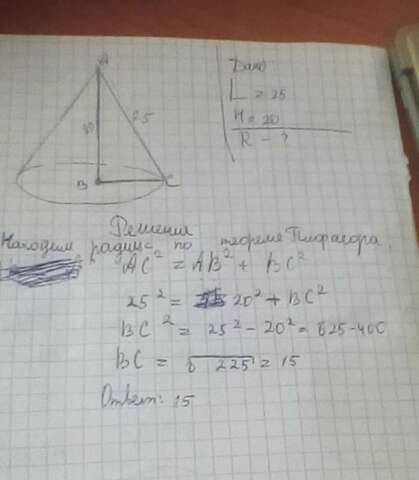 A
20
25
B
C
Дано
L = 25
H = 20
R - ?
Решения
Находим радиус по теореме Пифагора
AC² = AB² + BC²
25² = 20² + BC²
BC² = 25² - 20² = 625-400
BC = √225 = 15
Ответ: 15